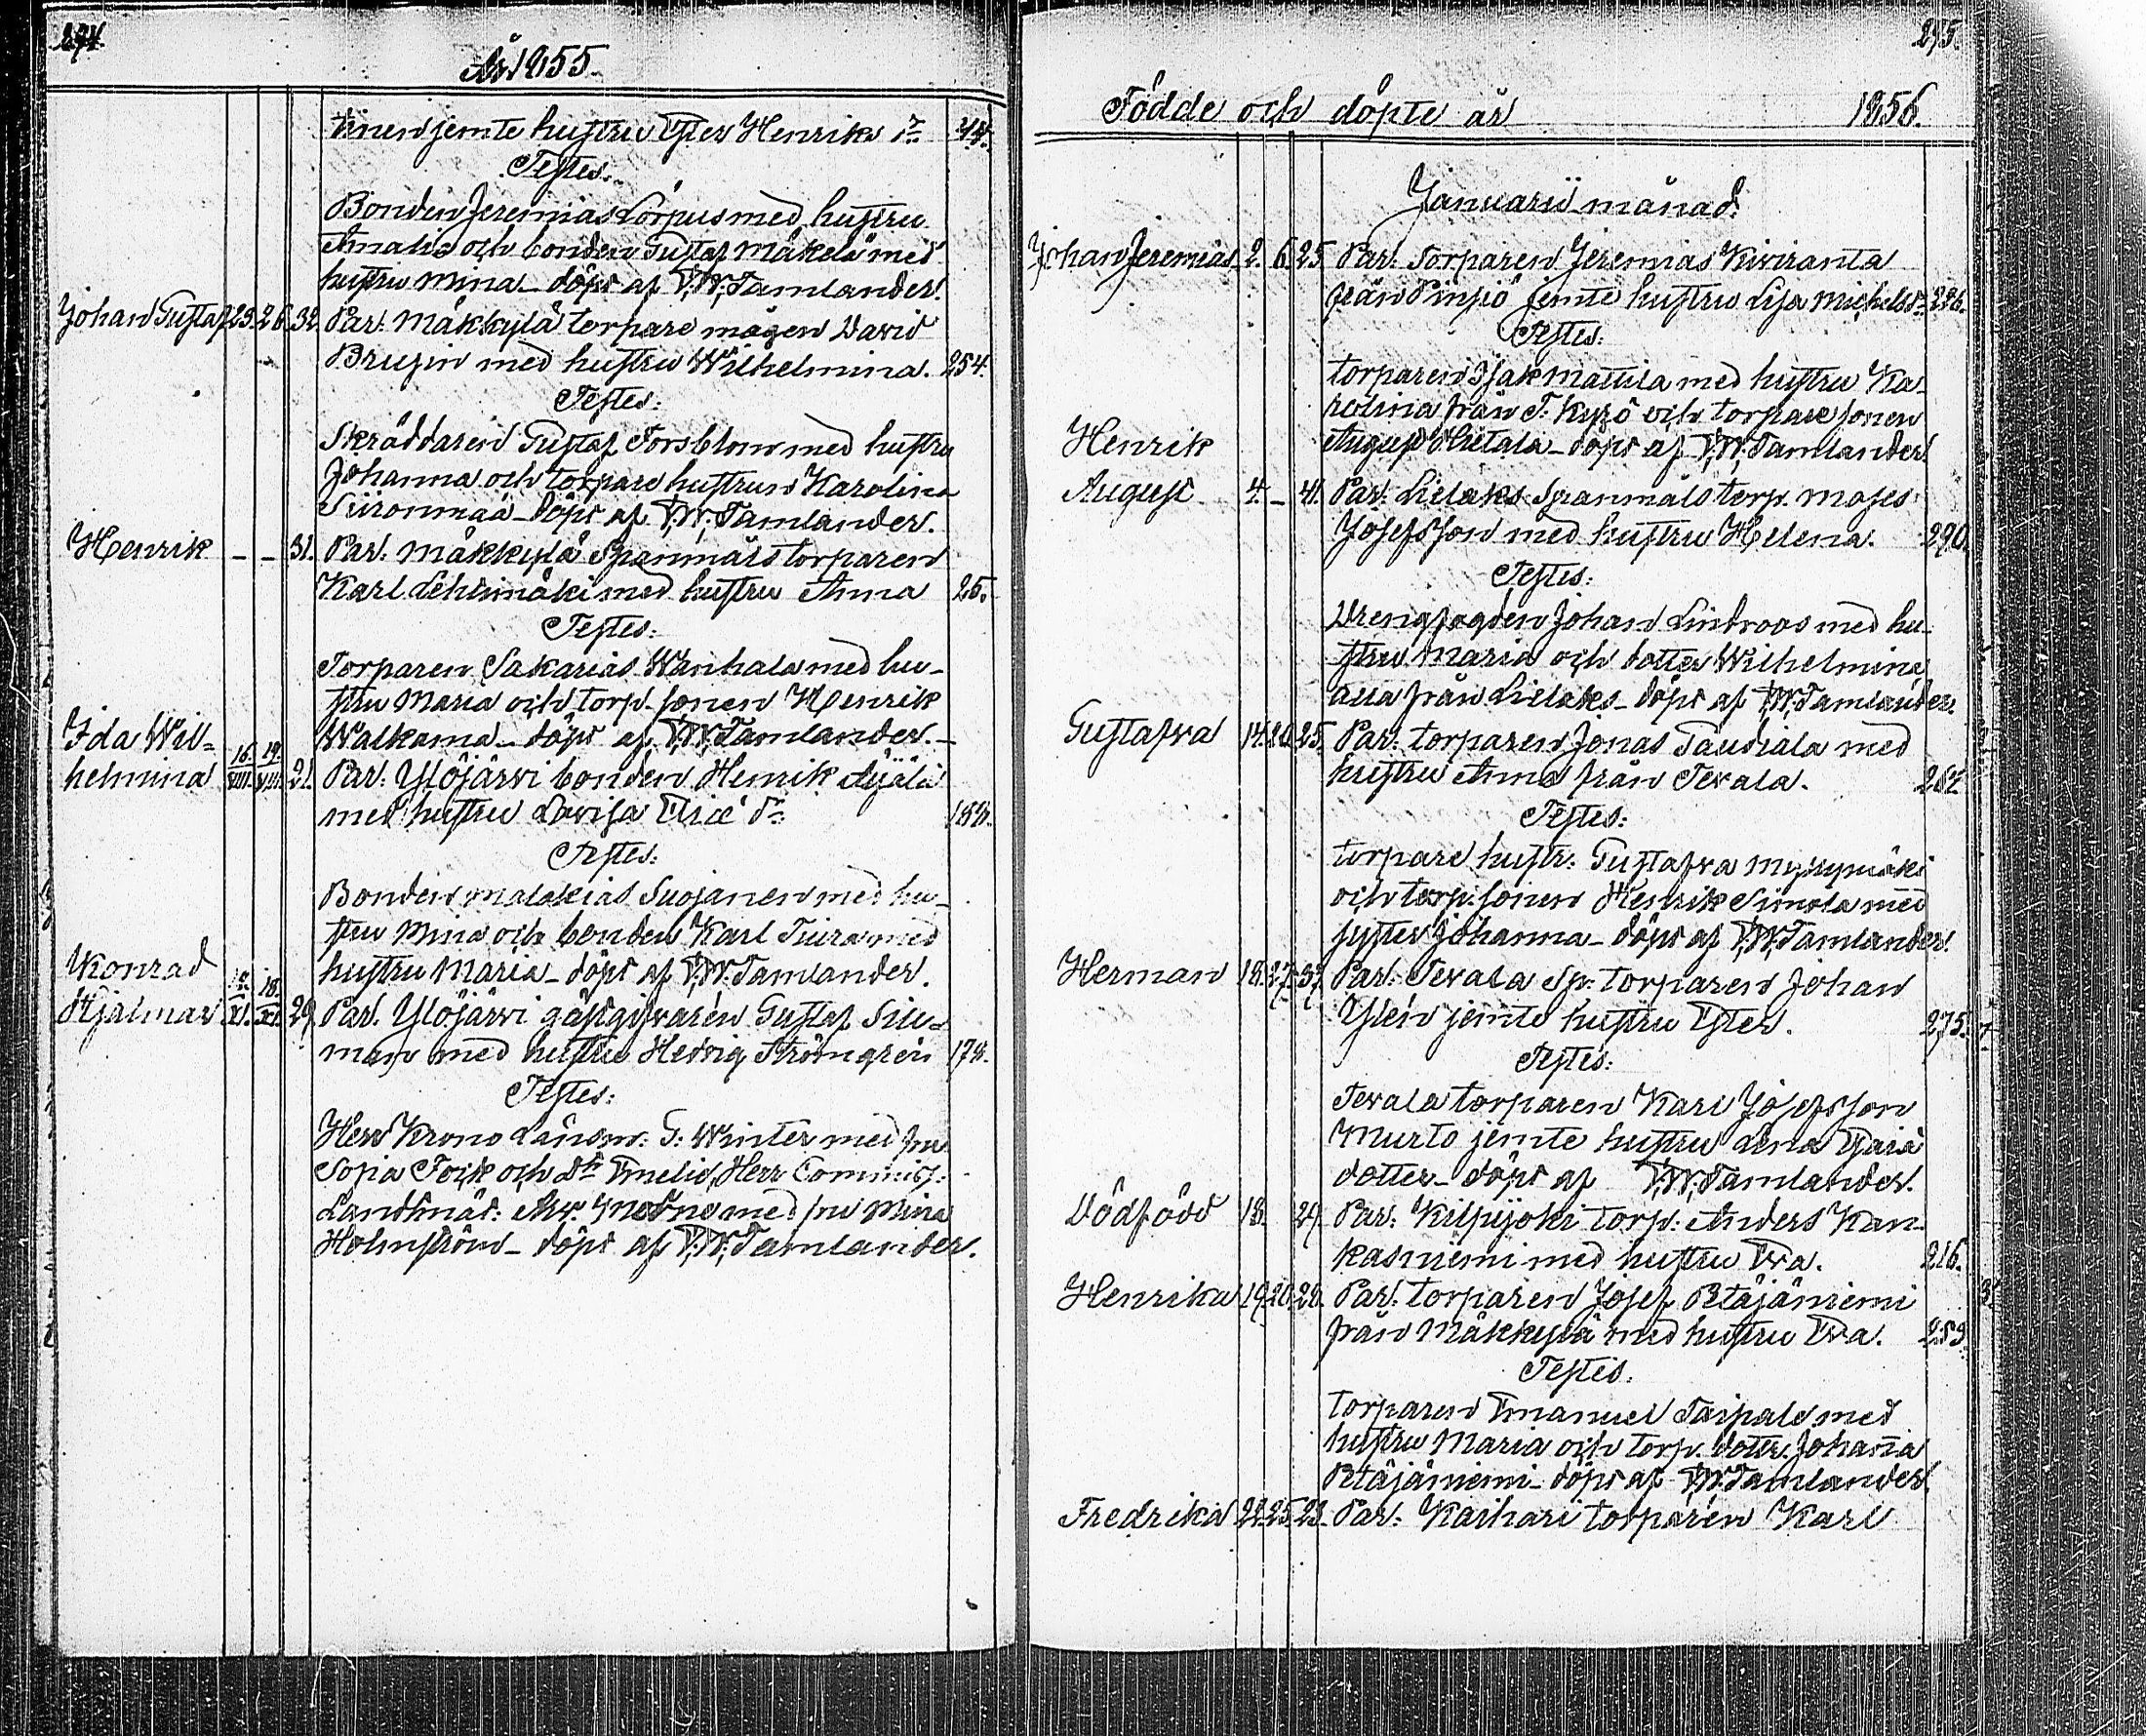 294.
År 1855.
knen jemte hustru Ester Henriks dr 44.
Testes.
Bonden Jeremias Lörpus med hustru
Amalia och bonden Gustaf Mäkelä med
hustru Mina – döpt af V.W. Tamlander.
Johan Gustaf 23. 26. 32. Par. Mäkkylä torpare mågen David
Brusin med hustru Wilhelmina. 254.
Testes:
Skräddaren Gustaf Forsblom med hustru
Johanna och torpare hustrun Karolina
Siironmaa – döpt af V.W. Tamlander.
Henrik – – 31. Par. Mäkkylä Spanmålstorparen
Karl Lehtimäki med hustru Anna 25.
Testes:
Torparen Sakarias Wanhala med hu-
stru Maria och torp. sonen Henrik
Walkama – döpt af V.W. Tamlander. –
Ida Wil=
helmina 16. VIII. 19. VIII. 21. Par. Ylöjärvi bonden Henrik Äijälä
med hustru Lovisa Eliæ dr 188.
Testes:
Bonden Malakias Suojanen med hu-
stru Mina och bonden Karl Tiura med
hustru Maria – döpt af V.W. Tamlander.
Konrad
Hjalmar XI. 18. XI. 29. Par. Ylöjärvi gästgifvaren Gustaf Siu-
man med hustru Hedvig Strömgrén 178.
Testes:
Herr Krono Länsm: G: Winter med fru
Sofia Foik och Emelie, Herr Commiss:
Landtmät: med fru Mina
Holmström – döpt af V.W. Tamlander.
295.
Födde och döpte år 1856.
Januarii månad.
Johan Jeremias 2. 6. 25. Par. Torparen Jeremias Kiviranta
från Pinsiö jemte hustru Lisa Michelsdr 226.
Testes:
torparen Isak Mattila med hustru Ka-
rolina från T. Kyrö och torpare sonen
August Hietala – döpt af V.W. Tamlander.
Henrik
August 4. – 41. Par: Lielaks Spanmåls torp. Moses
Josefsson med hustru Helena. 290.
Testes:
Drengfogden Johan Lindroos med hu-
stru Maria och dotter Wilhelmina
alla från Lielaks – döpt af V.W. Tamlander.
Gustafva 14. 20. 25. Par: torparen Jonas Taudiala med
hustru Anna från Tevala. 264.
Testes:
torpare hustr: Gustafva Myllymäki
och torp. sonen Henrik Simola med
syster Johanna – döpt af V.W. Tamlander.
Herman 18. 27. 37. Par: Tevala Sp: torparen Johan
Ylén jemte hustru Ester. 275.
Testes:
Tevala torparen Karl Josefsson
Murto jemte hustru Lena Esaiæ
dotter – döpt af V.W. Tamlander.
Dödfödd 18. 27. Par: Kilpijoki torp: Anders Kan-
kasniemi med hustru Eva. 216.
Henrika 19. 20. 28. Par. torparen Josef Petäjäniemi
från Mäkkylä med hustru Eva. 259.
Testes.
torparen Emanuel Taipale med
hustru Maria och torp. dottr. Johanna
Petäjäniemi – döpt af V.W. Tamlander.
Fredrika 22. 25. 23. Par: Kaihari torparen Karl